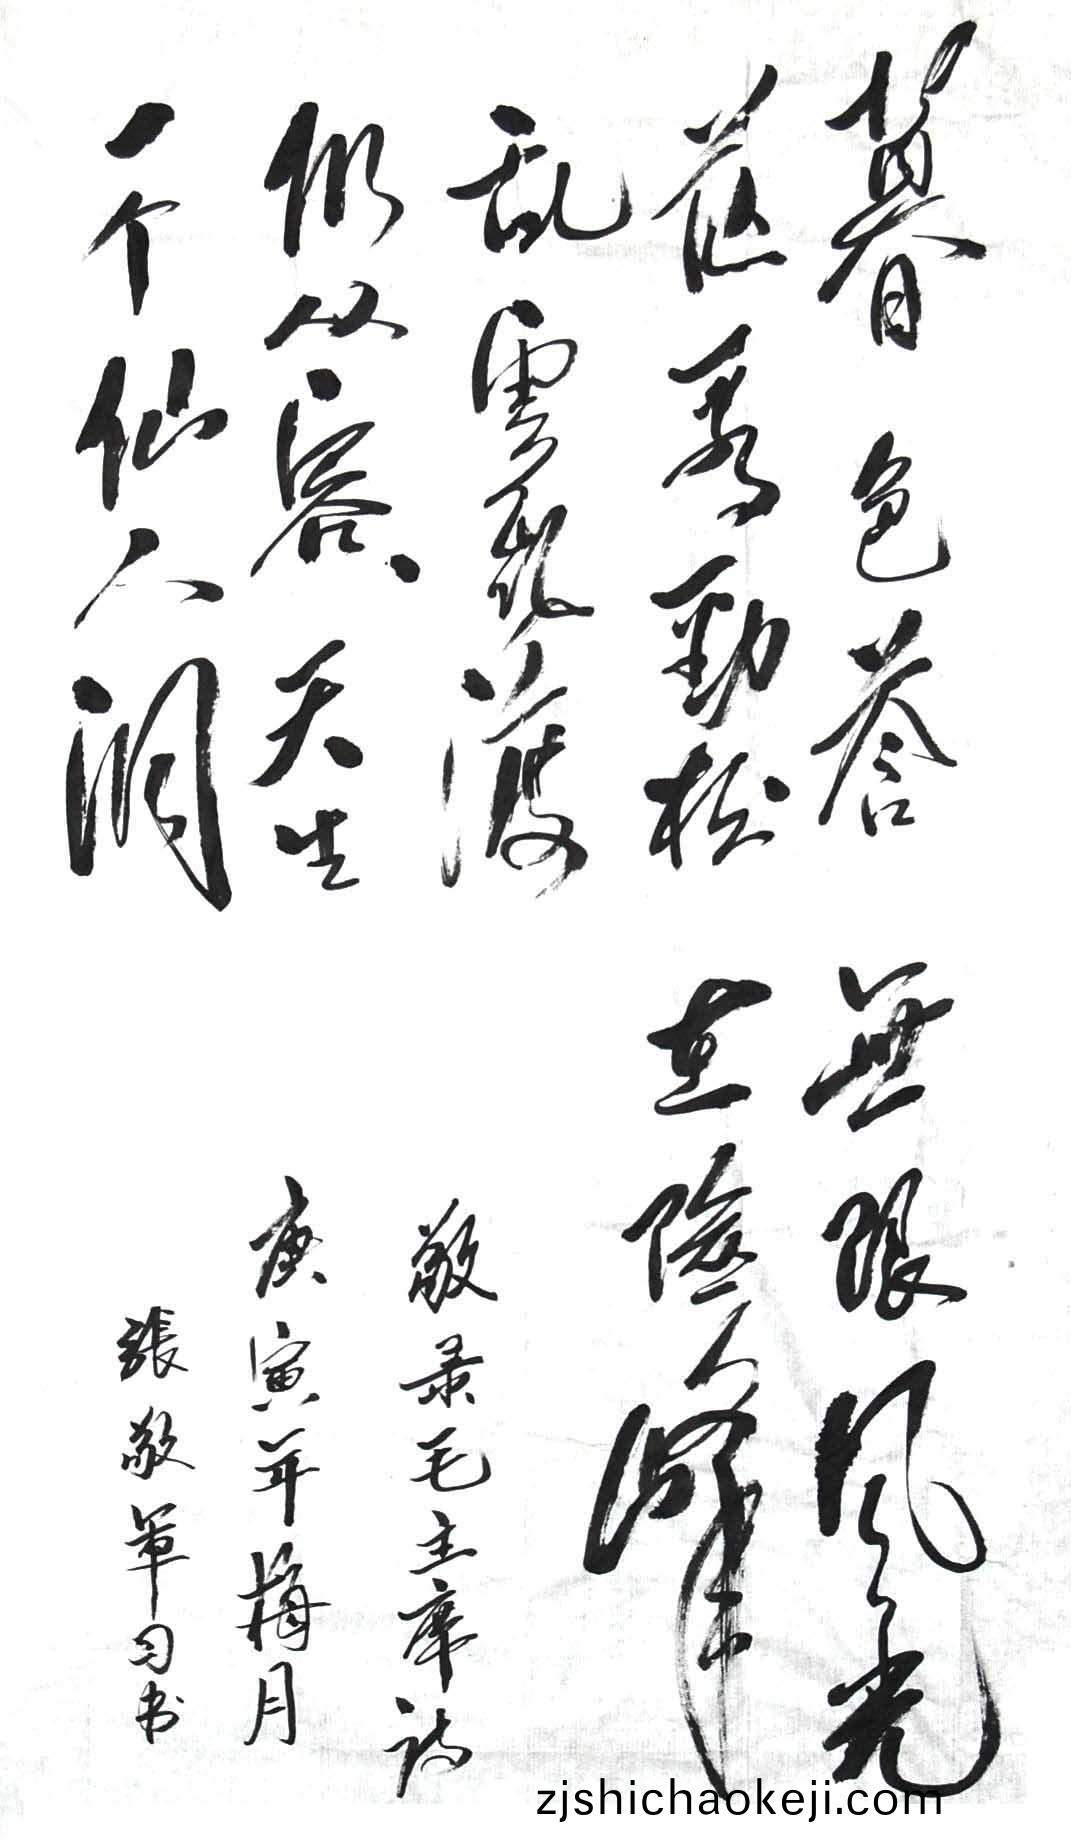 暮色蒼
茫看勁松
乱雲飛渡
仍从容、天生
一个仙人洞
無限风光
在險峰
敬录毛主席诗
庚寅年梅月
張敬軍习书
zjshichaokeji.com